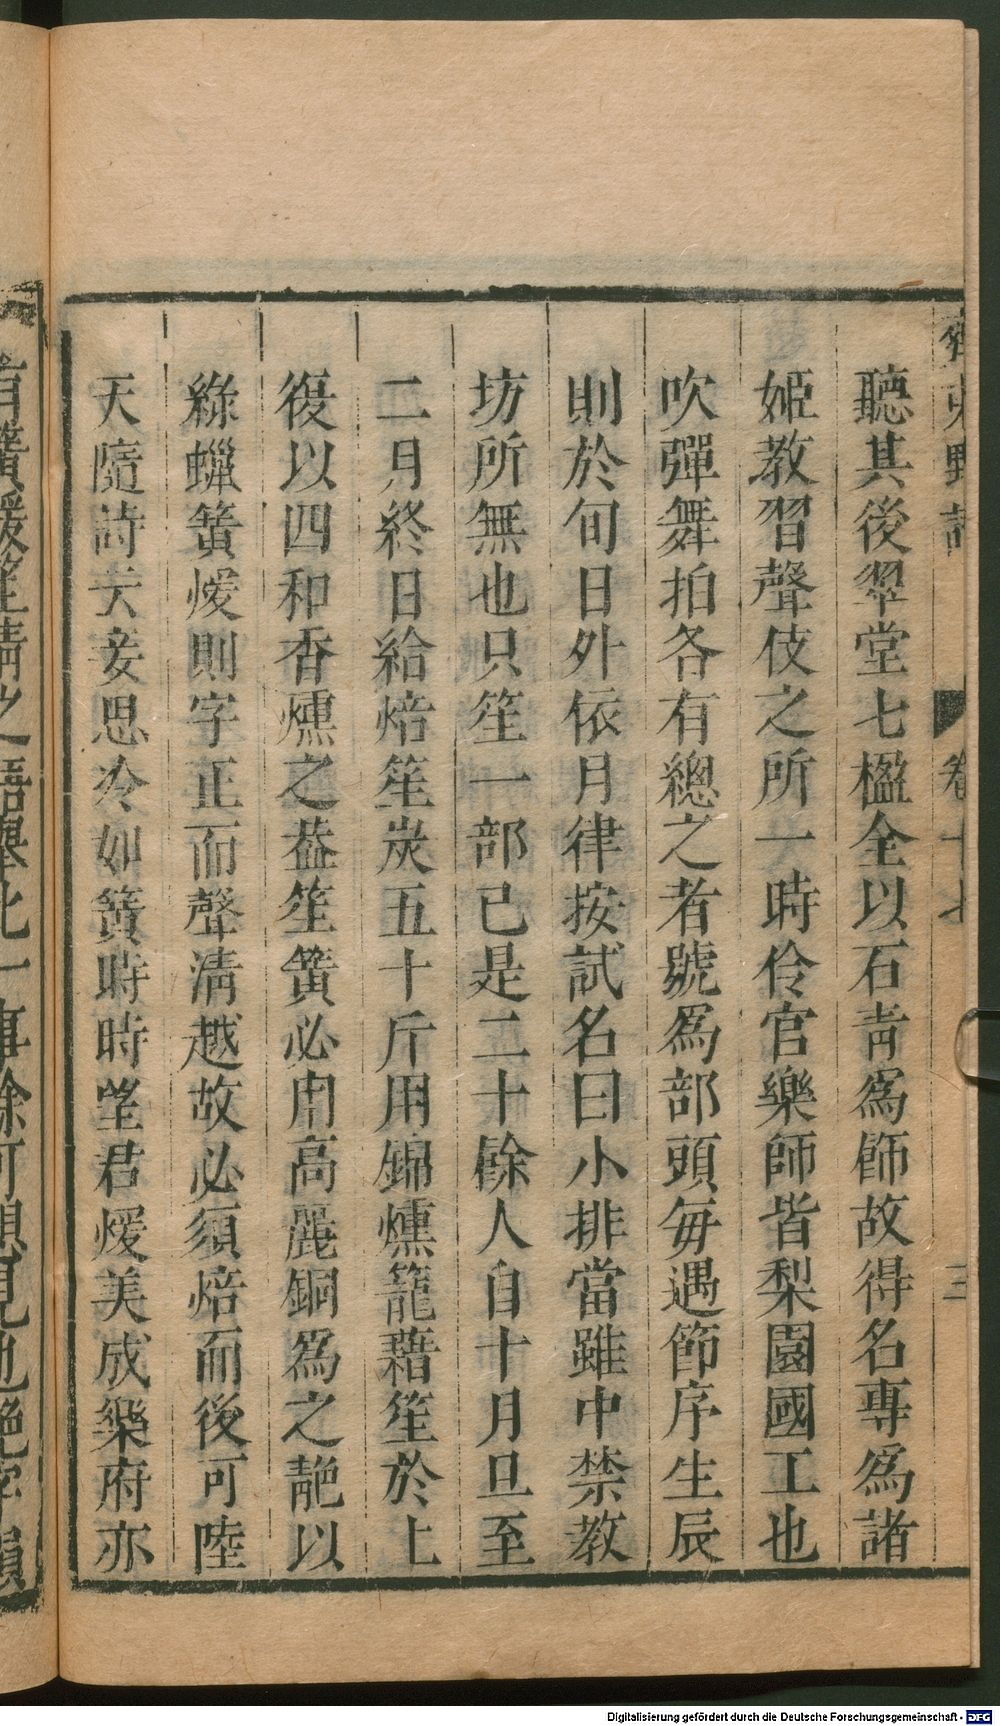 齊東野語 卷十七 三
聽其後翆堂七楹全以石靑爲飾故得名專爲諸
姬教習聲伎之所一時伶官樂師皆梨園國工也
吹彈舞拍各有總之者號爲部頭每遇節序生辰
則於旬日外依月律按試名曰小排當雖中禁教
坊所無也只笙一部已是二十餘人自十月旦至
二月終日給焙笙炭五十斤用錦燻籠藉笙於上
復以四和香燻之葢笙簧必用高麗銅爲之靘以
綠蠟簧煖則字正而聲淸越故必須焙而後可陸
天隨詩云妾思冷如簧時時望君煖美成樂府亦
有簧煖笙淸之語舉此一事餘可想見也
Digitalisierung gefördert durch die Deutsche Forschungsgemeinschaft - DFG